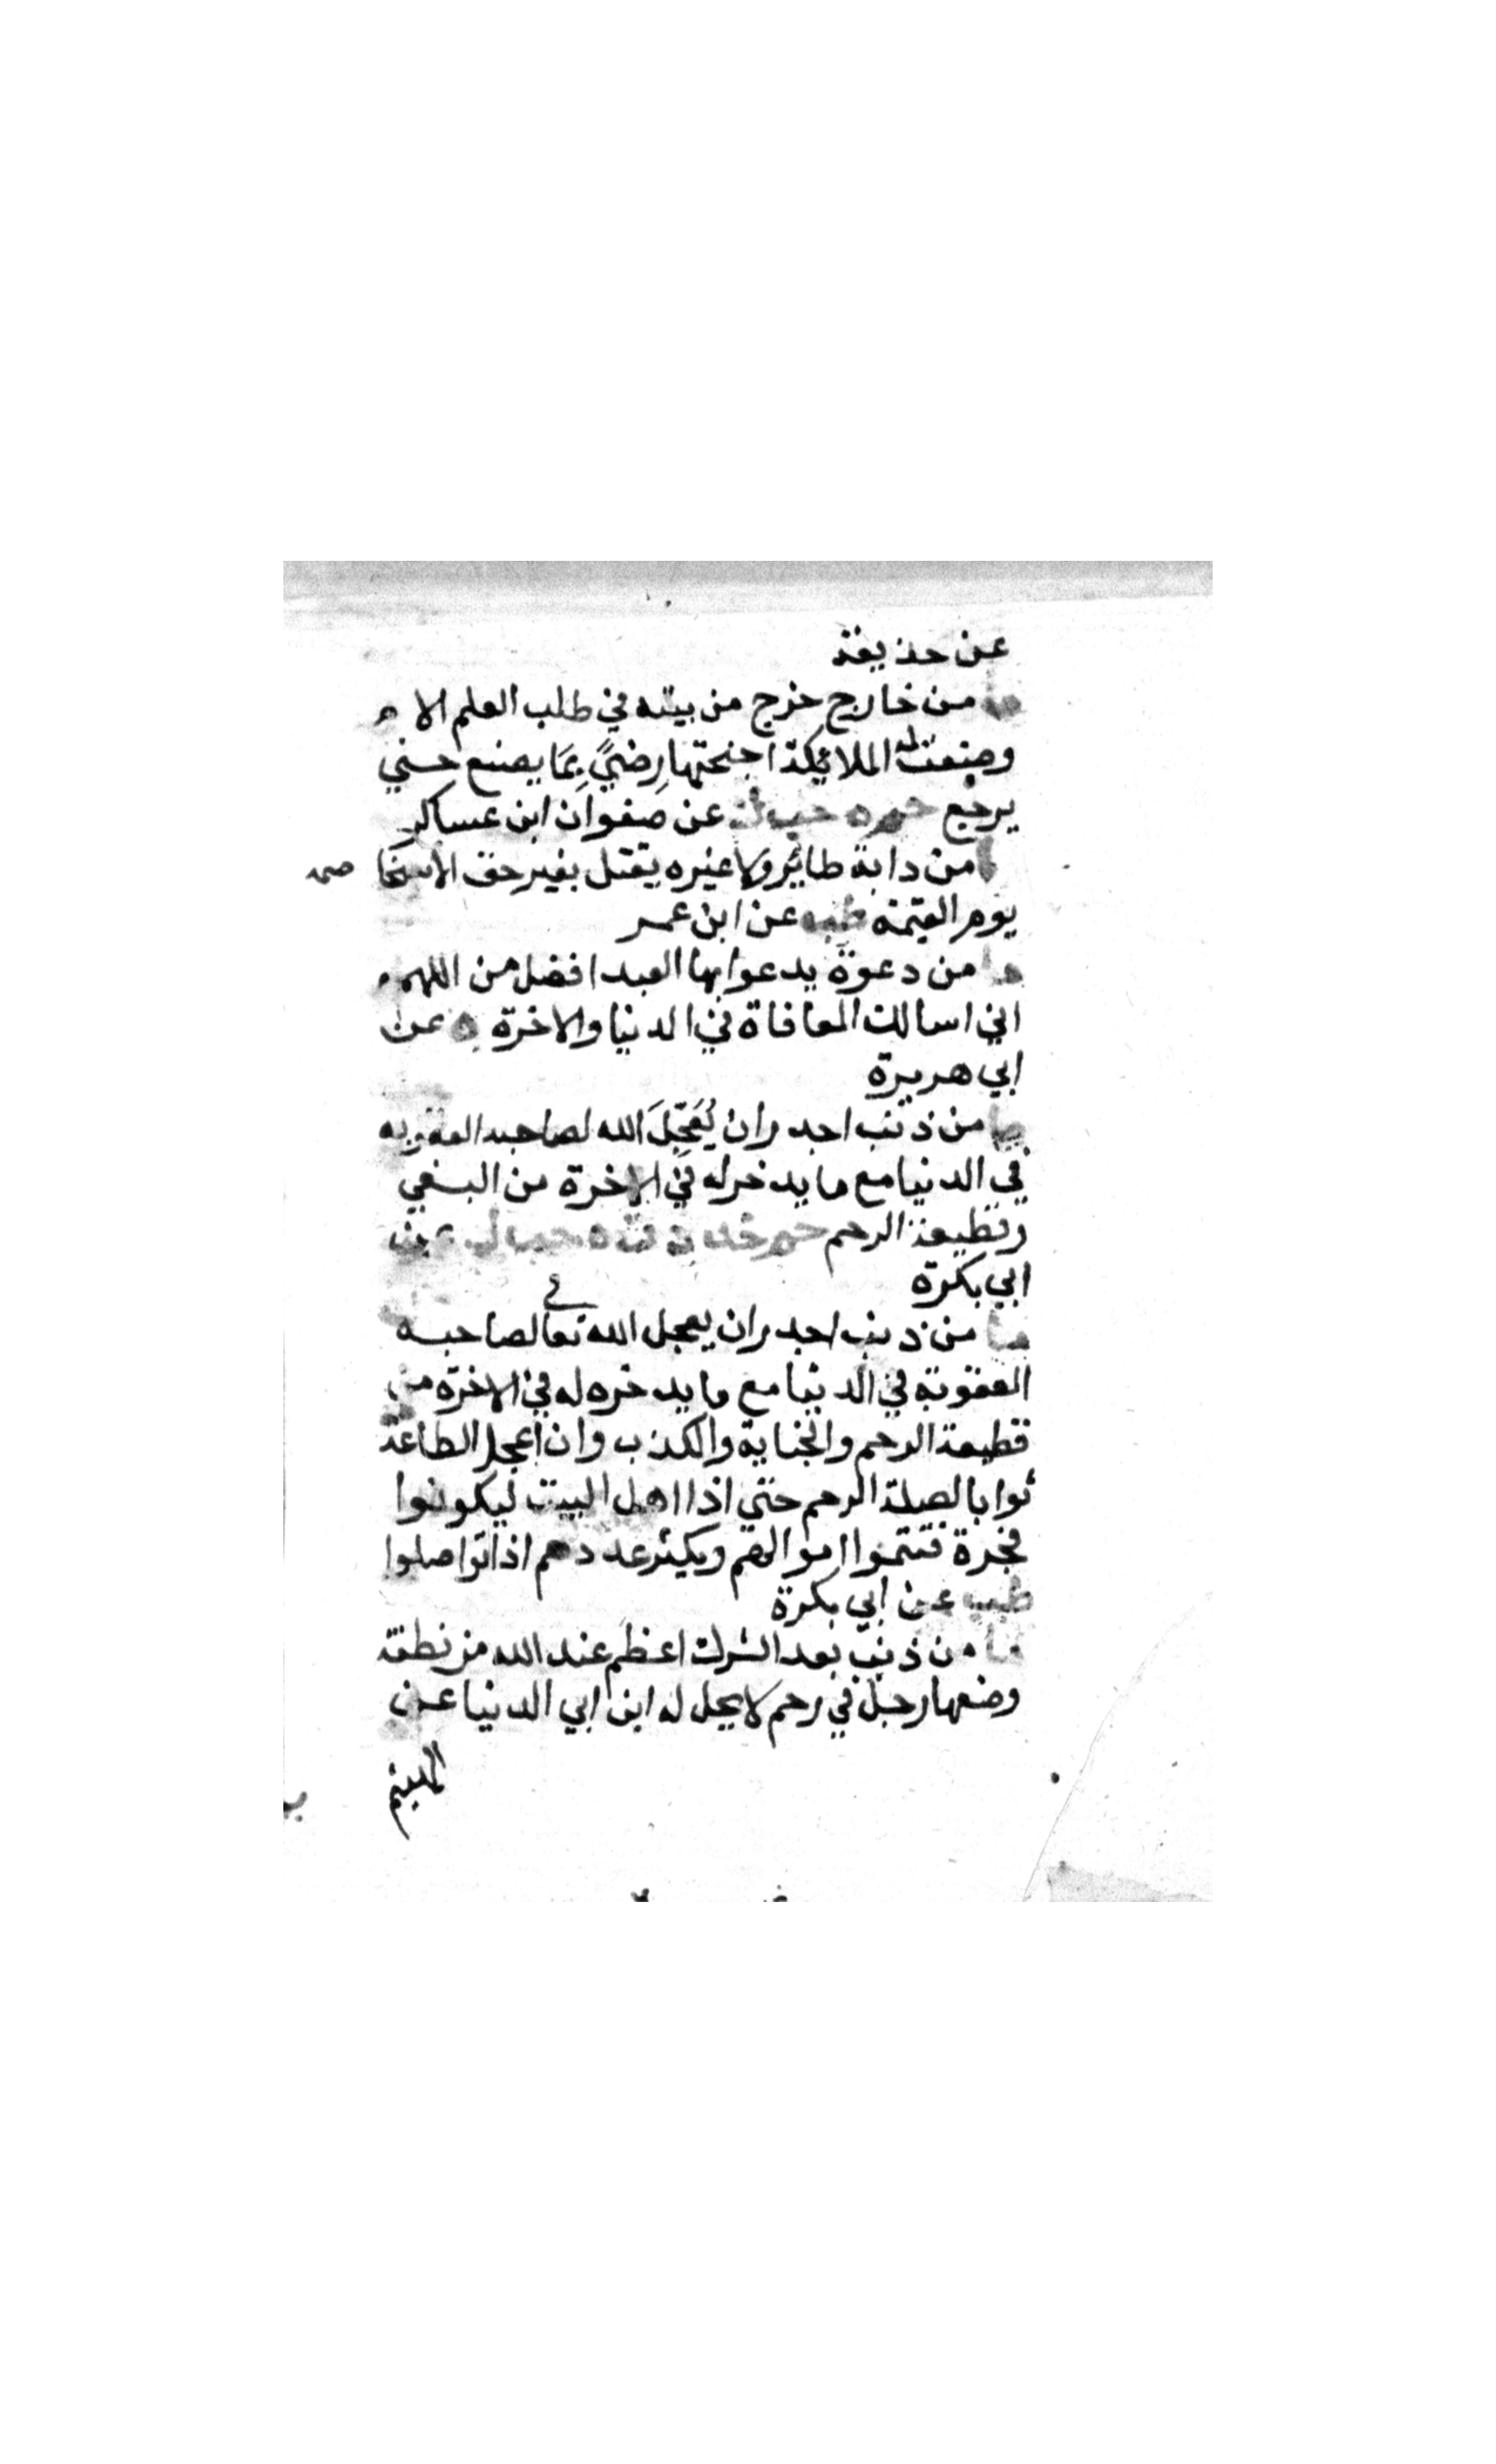 عن حذيفة
ما من خارج خرج من بيته في طلب العلم الا
وضعت له الملائكة اجنحتها رضيً بما يصنع حتي
يرجع حم ه حب ك عن صفوان ابن عساكر
ما من دابة طائر ولا غيره يقتل بغير حق الا
يوم القيمة طب عن ابن عمر
ما من دعوة يدعوا بها العبد افضل من اللهم
اني اسالك المعافاة في الدنيا والاخرة ه عن
ابي هريرة
ما من ذنب اجدر ان يُعَجِّلَ الله لصاحبه العقوبه
في الدنيا مع ما يدخر له في الاخرة من البغي
وقطيعة الرحم حم خد د ت ه حب ك عن
ابي بكرة
ما من ذنب اجدر ان يعجل الله تعالي لصاحبه
العقوبة في الدنيا مع ما يدخره له في الاخرة من
قطيعة الرحم والخيانة والكذب وان اعجل الطاعة
ثوابا لصلة الرحم حتي اذا اهل البيت ليكونوا
فجرة فتنموا اموالهم ويكثر عددهم اذا تواصلوا
طب عن ابي بكرة
ما من ذنب بعد الشرك اعظم عند الله من نطفة
وضعها رجل في رحم لا يحل له ابن ابي الدنيا عن
الهيثم